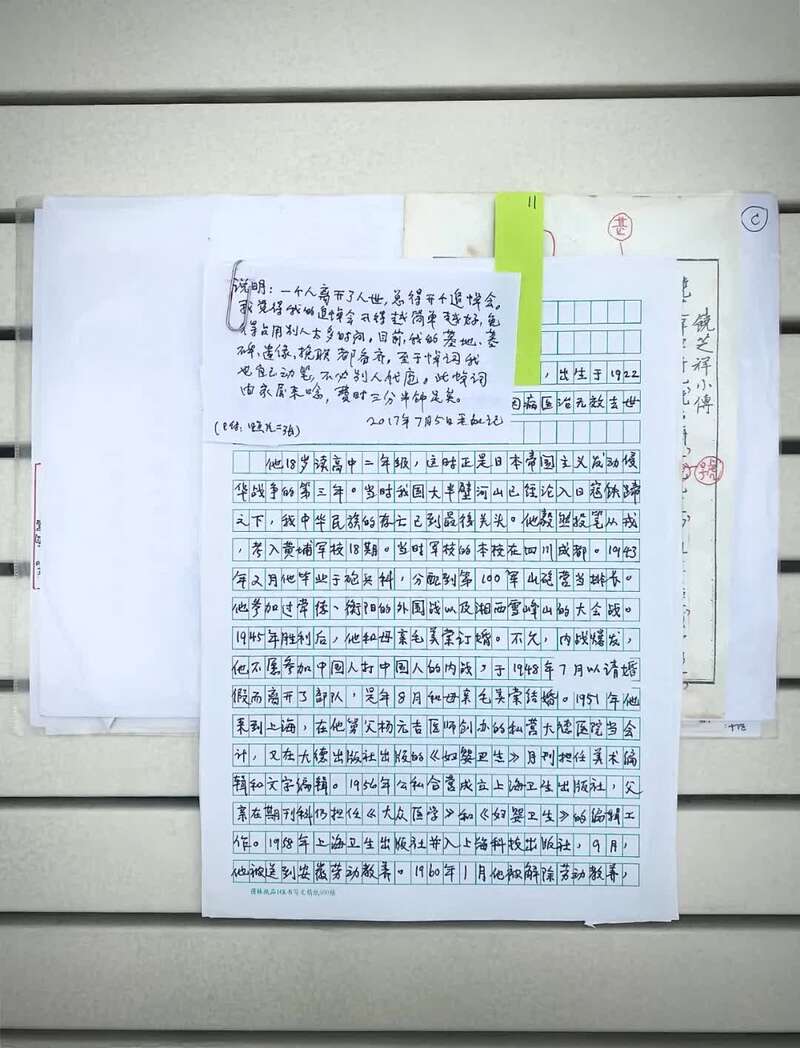 11
C
饒芝祥小傳
说明：一个人离开了人世，总得开个追悼会。
我觉得我的追悼会开得越简单越好，免
得占用别人太多时间。目前，我的墓地、墓
碑、遗像、挽联都备齐，至于悼词我
也自己动笔，不必别人代庖。此悼词
由家属来唸，费时三分半钟足矣。
2017年7月5日
，出生于1922
因病医治无效去世
他18岁读高中二年级，这时正是日本帝国主义发动侵
华战争的第三年。当时我国大半壁河山已经沦入日寇铁蹄
之下，我中华民族的存亡已到最后关头。他毅然投笔从戎
，考入黄埔军校18期。当时军校的本校在四川成都。1943
年又月他毕业于砲兵科，分配到第100军山砲营当排长。
他参加过常德、衡阳的外围战以及湘西雪峰山的大会战。
1945年胜利后，他和母亲毛美棠订婚。不久，内战爆发，
他不愿参加中国人打中国人的内战，于1948年7月以请婚
假而离开了部队，是年8月和母亲毛美棠结婚。1951年他
来到上海，在他舅父杨元吉医师创办的私营大德医院当会
计，又在大德出版社出版的《妇婴卫生》月刊担任美术编
辑和文字编辑。1956年公私合营成立上海卫生出版社，父
亲在期刊科仍担任《大众医学》和《妇婴卫生》的编辑工
作。1958年上海卫生出版社并入上海科技出版社，9月，
他被送到安徽劳动教养。1960年1月他被解除劳动教养，